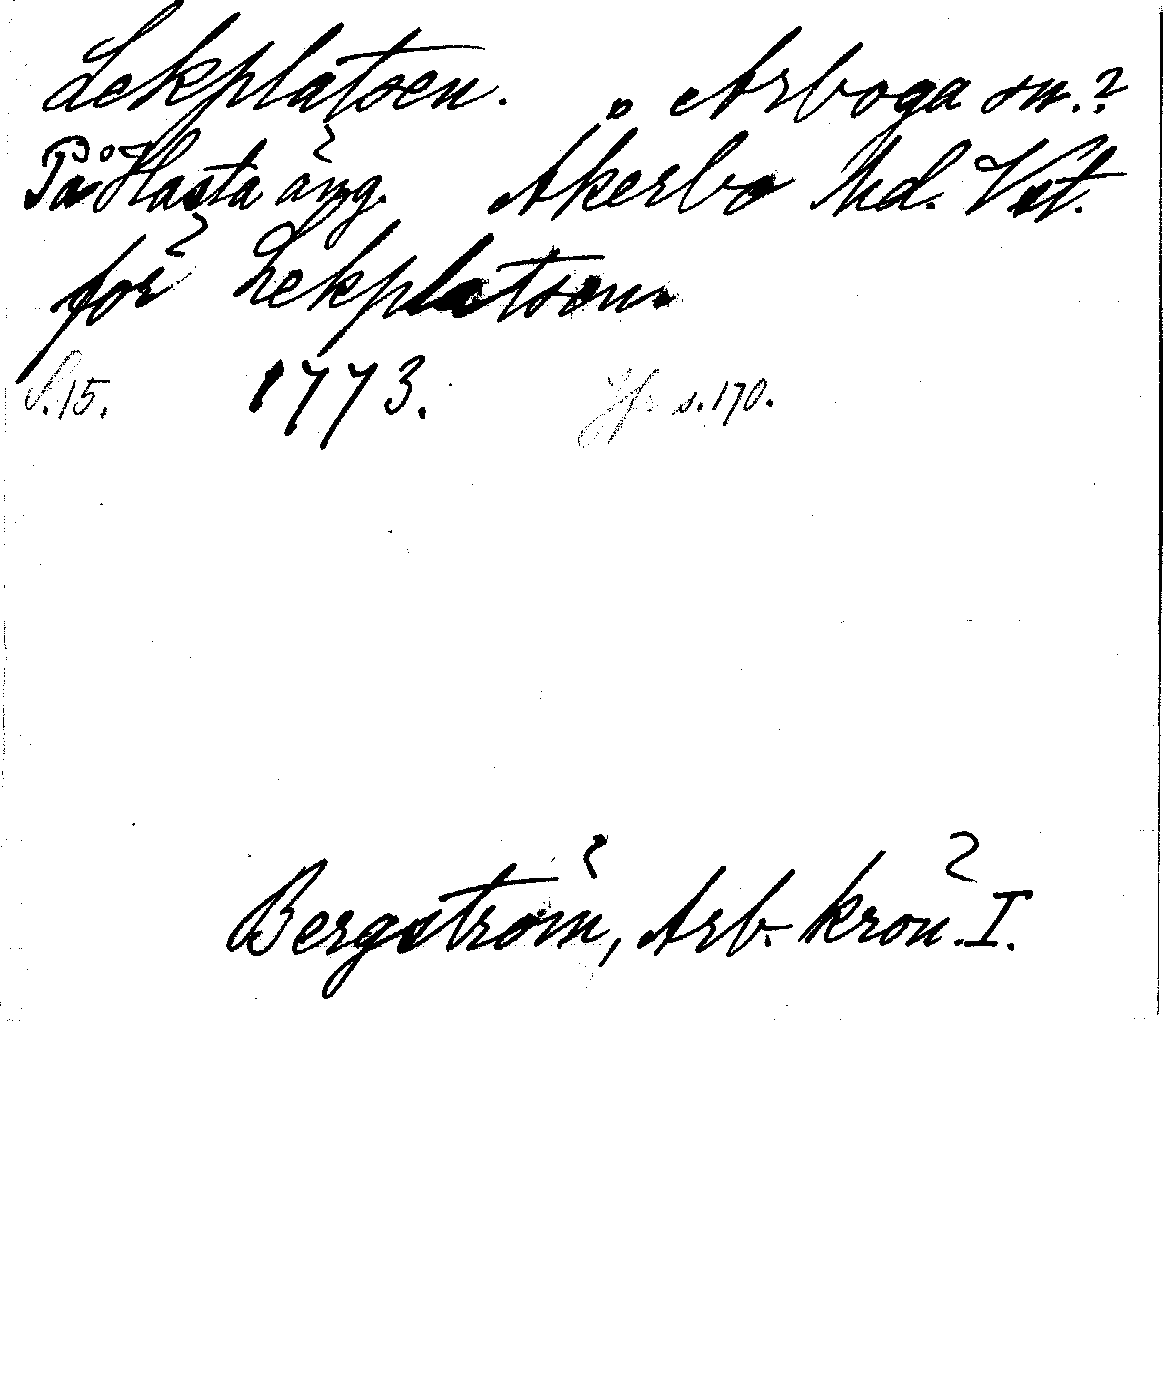 Lekplatsen. Arboga sn.?
På Hasta äng. Åkerbo hd. Vstl.
för Lekplatsen.
S. 15. 1773. Jfr s. 170.
Bergström, Arb. krön. I.